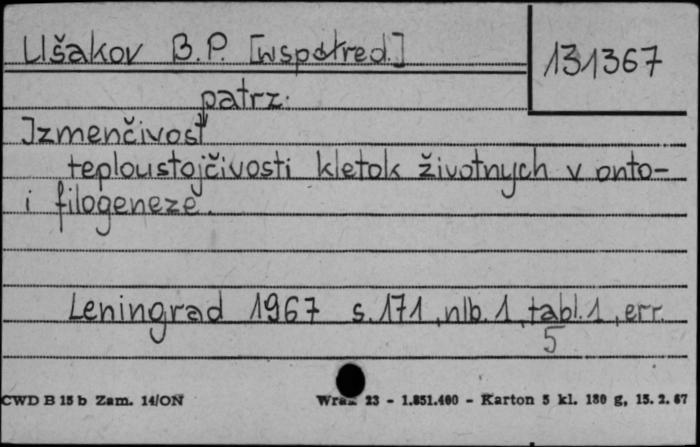 Ušakov B.P. [współred.]
131367
patrz:
Izmenčivost'
teploustojčivosti kletok životnych v onto-
i filogeneze.
Leningrad 1967 s. 171, nlb. 1, tabl. 1, err.
5
CWD B 15 b Zam. 14/ON
23 - 1.851.400 - Karton 5 kl. 180 g, 15. 2. 67